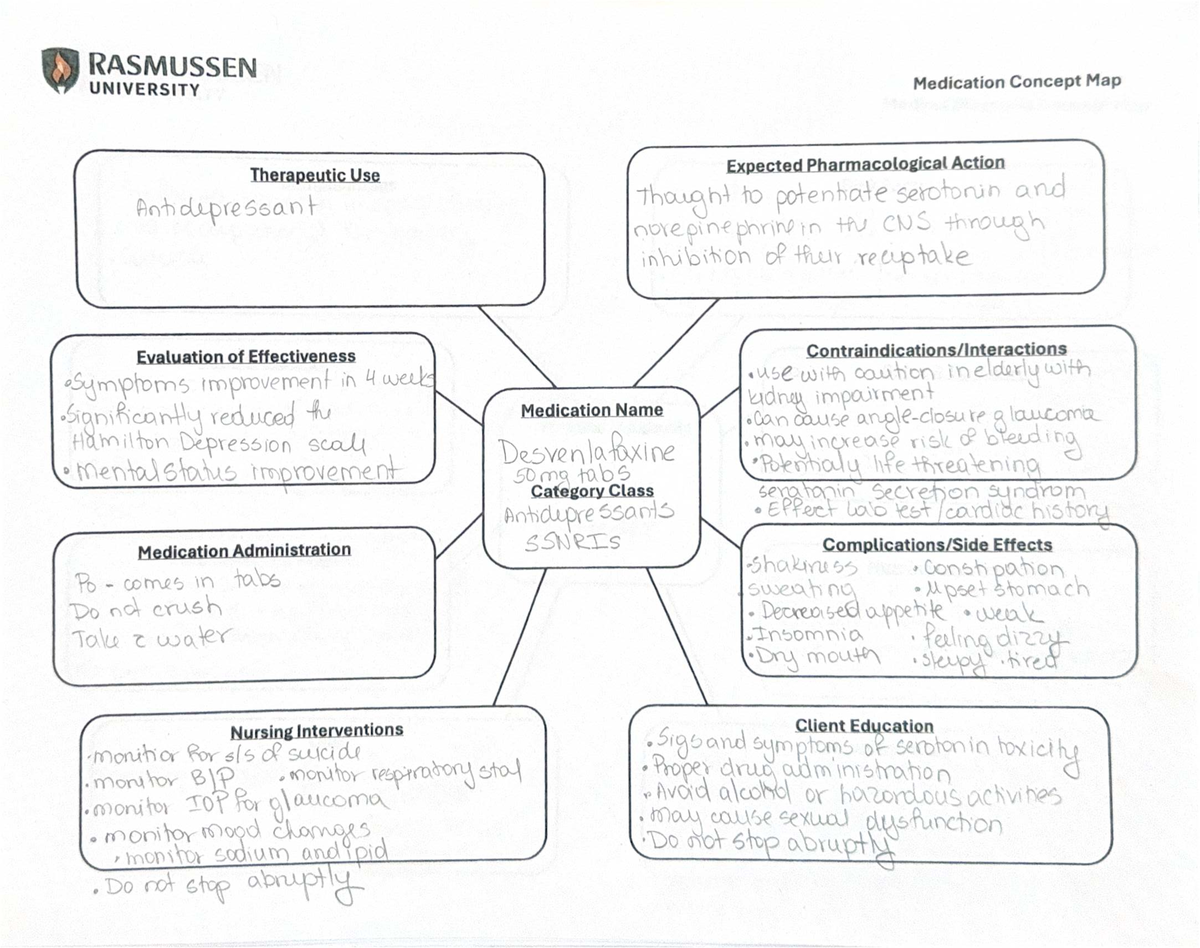 RASMUSSEN
UNIVERSITY
Medication Concept Map
Therapeutic Use
Antidepressant
Expected Pharmacological Action
Thought to potentiate serotonin and
norepinephrine in the CNS through
inhibition of their reciptake
Evaluation of Effectiveness
• Symptoms improvement in 4 weeks
• Significantly reduced the
Hamilton Depression scale
• Mental status improvement
Medication Name
Desvenlafaxine
50 mg tabs
Category Class
Antidepressants
SSNRIs
Contraindications/Interactions
• use with caution in elderly with
kidney impairment
• Can cause angle-closure glaucoma
• may increase risk of bleeding
• Potentialy life threatening
seratonin secretion syndrom
• Effect Lab test/cardiac history
Medication Administration
Po - comes in tabs
Do not crush
Take c̄ water
Complications/Side Effects
• Shakiness • Constipation
• sweating • Upset stomach
• Decreased appetite • weak
• Insomnia • feeling dizzy
• Dry mouth • sleepy • tired
Nursing Interventions
• monitior for s/s of suicide
• monitor B/P • monitor respiratory
• monitor IOP for glaucoma
• monitor mood changes
• monitor sodium and lipid
• Do not stop abruptly
Client Education
• Sigs and symptoms of serotonin toxicity
• Proper drug administration
• Avoid alcohol or hazordous activities
• may cause sexual dysfunction
• Do not stop abruptly